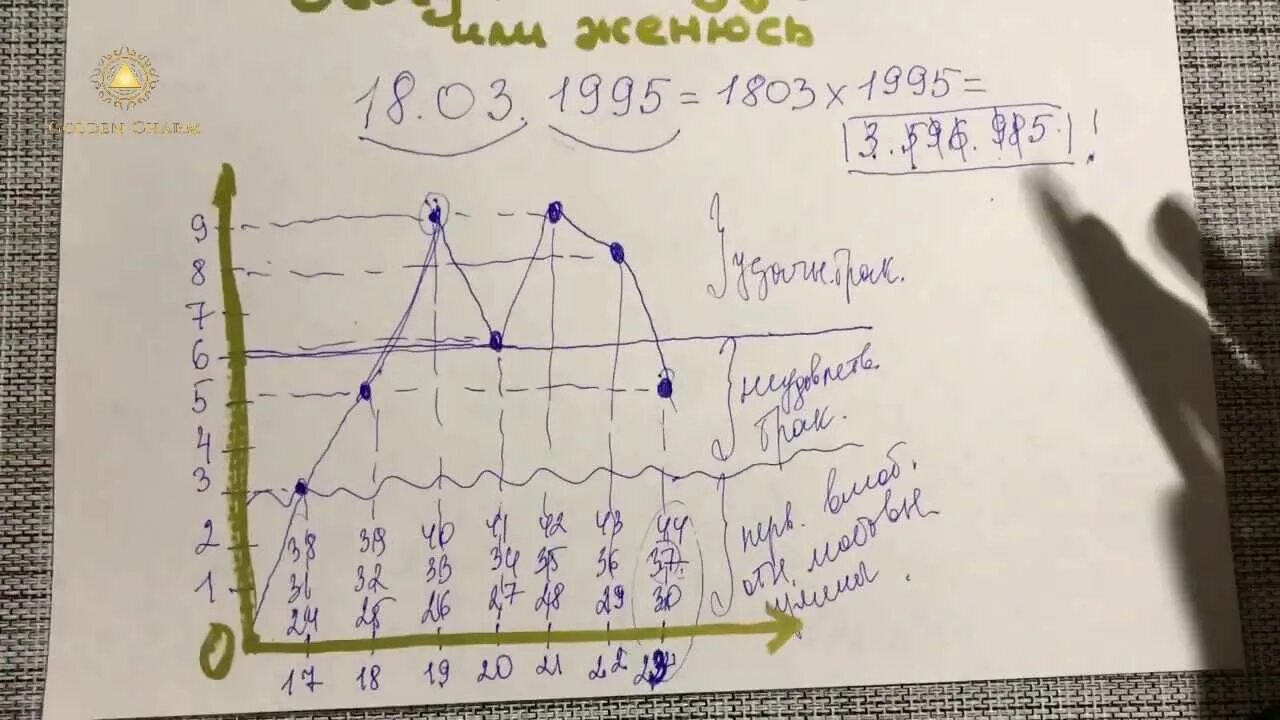 или женюсь
GOLDEN CHARM
18.03. 1995 = 1803 х 1995 =
3.596.985. !
9
8
7
6
5
4
3
2
1
0
удачн. брак.
неудовлетв.
брак.
перв. влюб.
отн.
38 39 40 41 42 43 44
31 32 33 34 35 36 37
24 25 26 27 28 29 30
17 18 19 20 21 22 23